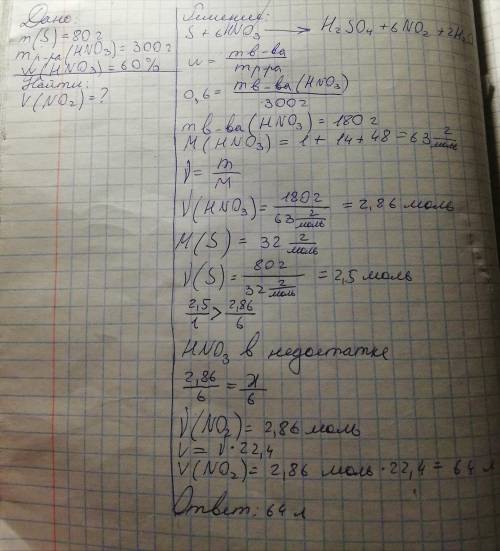 Дано:
m(S) = 80 г
m р-ра (HNO₃) = 300 г
w(HNO₃) = 60%
Найти:
V(NO₂) = ?
Решение:
S + 6HNO₃ → H₂SO₄ + 6NO₂ + 2H₂O
w = m в-ва / m р-ра
0,6 = m в-ва (HNO₃) / 300 г
m в-ва (HNO₃) = 180 г
M(HNO₃) = 1 + 14 + 48 = 63 г/моль
ν = m / M
ν(HNO₃) = 180 г / 63 г/моль = 2,86 моль
M(S) = 32 г/моль
ν(S) = 80 г / 32 г/моль = 2,5 моль
2,5/1 > 2,86/6
HNO₃ в недостатке
2,86/6 = x/6
ν(NO₂) = 2,86 моль
V = ν · 22,4
V(NO₂) = 2,86 моль · 22,4 = 64 л
Ответ: 64 л